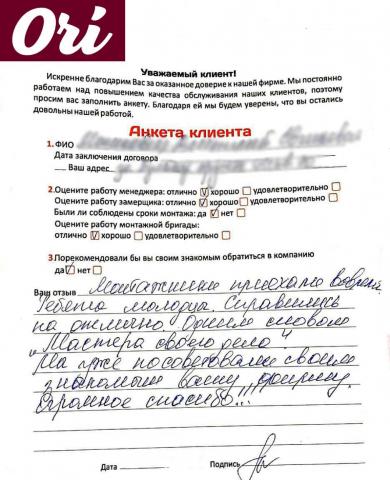 Ori
Уважаемый клиент!
Искренне благодарим Вас за оказанное доверие к нашей фирме. Мы постоянно
работаем над повышением качества обслуживания наших клиентов, поэтому
просим вас заполнить анкету. Благодаря ей мы будем уверены, что вы остались
довольны нашей работой.
Анкета клиента
1. ФИО
Дата заключения договора
Ваш адрес
2.Оцените работу менеджера: отлично V хорошо удовлетворительно
Оцените работу замерщика: отлично V хорошо удовлетворительно
Были ли соблюдены сроки монтажа: да V нет
Оцените работу монтажной бригады:
отлично V хорошо удовлетворительно
3.Порекомендовали бы вы своим знакомым обратиться в компанию
да V нет
Ваш отзыв Монтажники приехали вовремя
Ребята молодцы. Справились
на отлично. Одним словом
"Мастера своего дела"!
Мы уже посоветовали своим
знакомым вашу фирму.
Огромное спасибо!!!
Дата Подпись